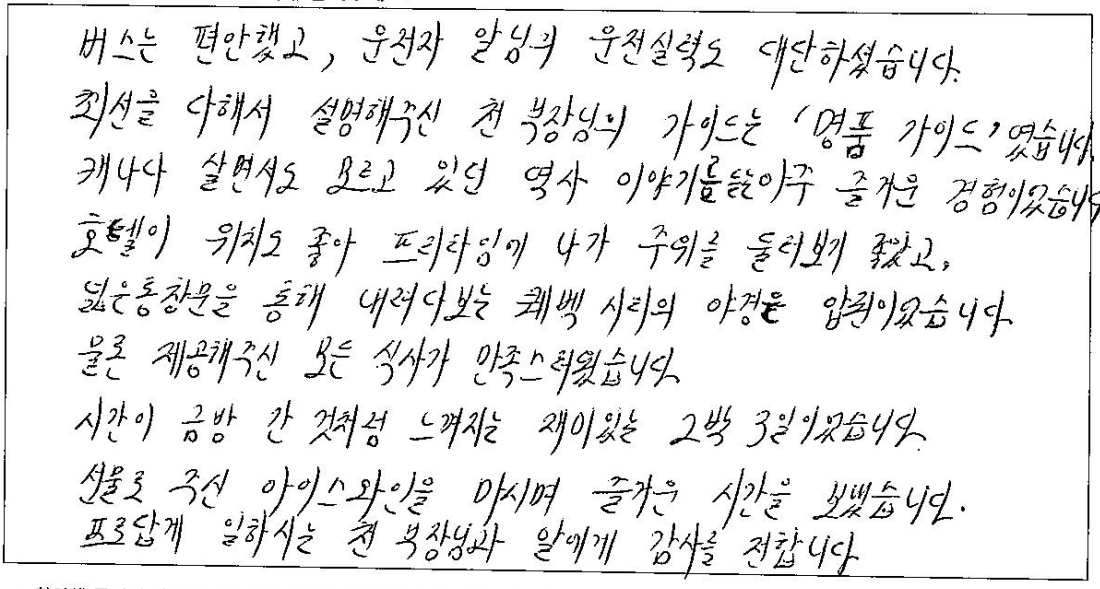 버스는 편안했고, 운전자 알님의 운전실력도 대단하셨습니다.
최선을 다해서 설명해주신 천 부장님의 가이드는 '명품 가이드'였습니다
캐나다 살면서도 모르고 있던 역사 이야기를 듣는 아주 즐거운 경험이었습니다
호텔이 위치도 좋아 프리타임에 나가 주위를 둘러보기 좋았고,
넓은 통창문을 통해 내려다보는 퀘벡 시티의 야경은 압권이었습니다
물론 제공해주신 모든 식사가 만족스러웠습니다.
시간이 금방 간 것처럼 느껴지는 재미있는 2박 3일이었습니다.
선물로 주신 아이스와인을 마시며 즐거운 시간을 보냈습니다.
프로답게 일하시는 천 부장님과 알에게 감사를 전합니다